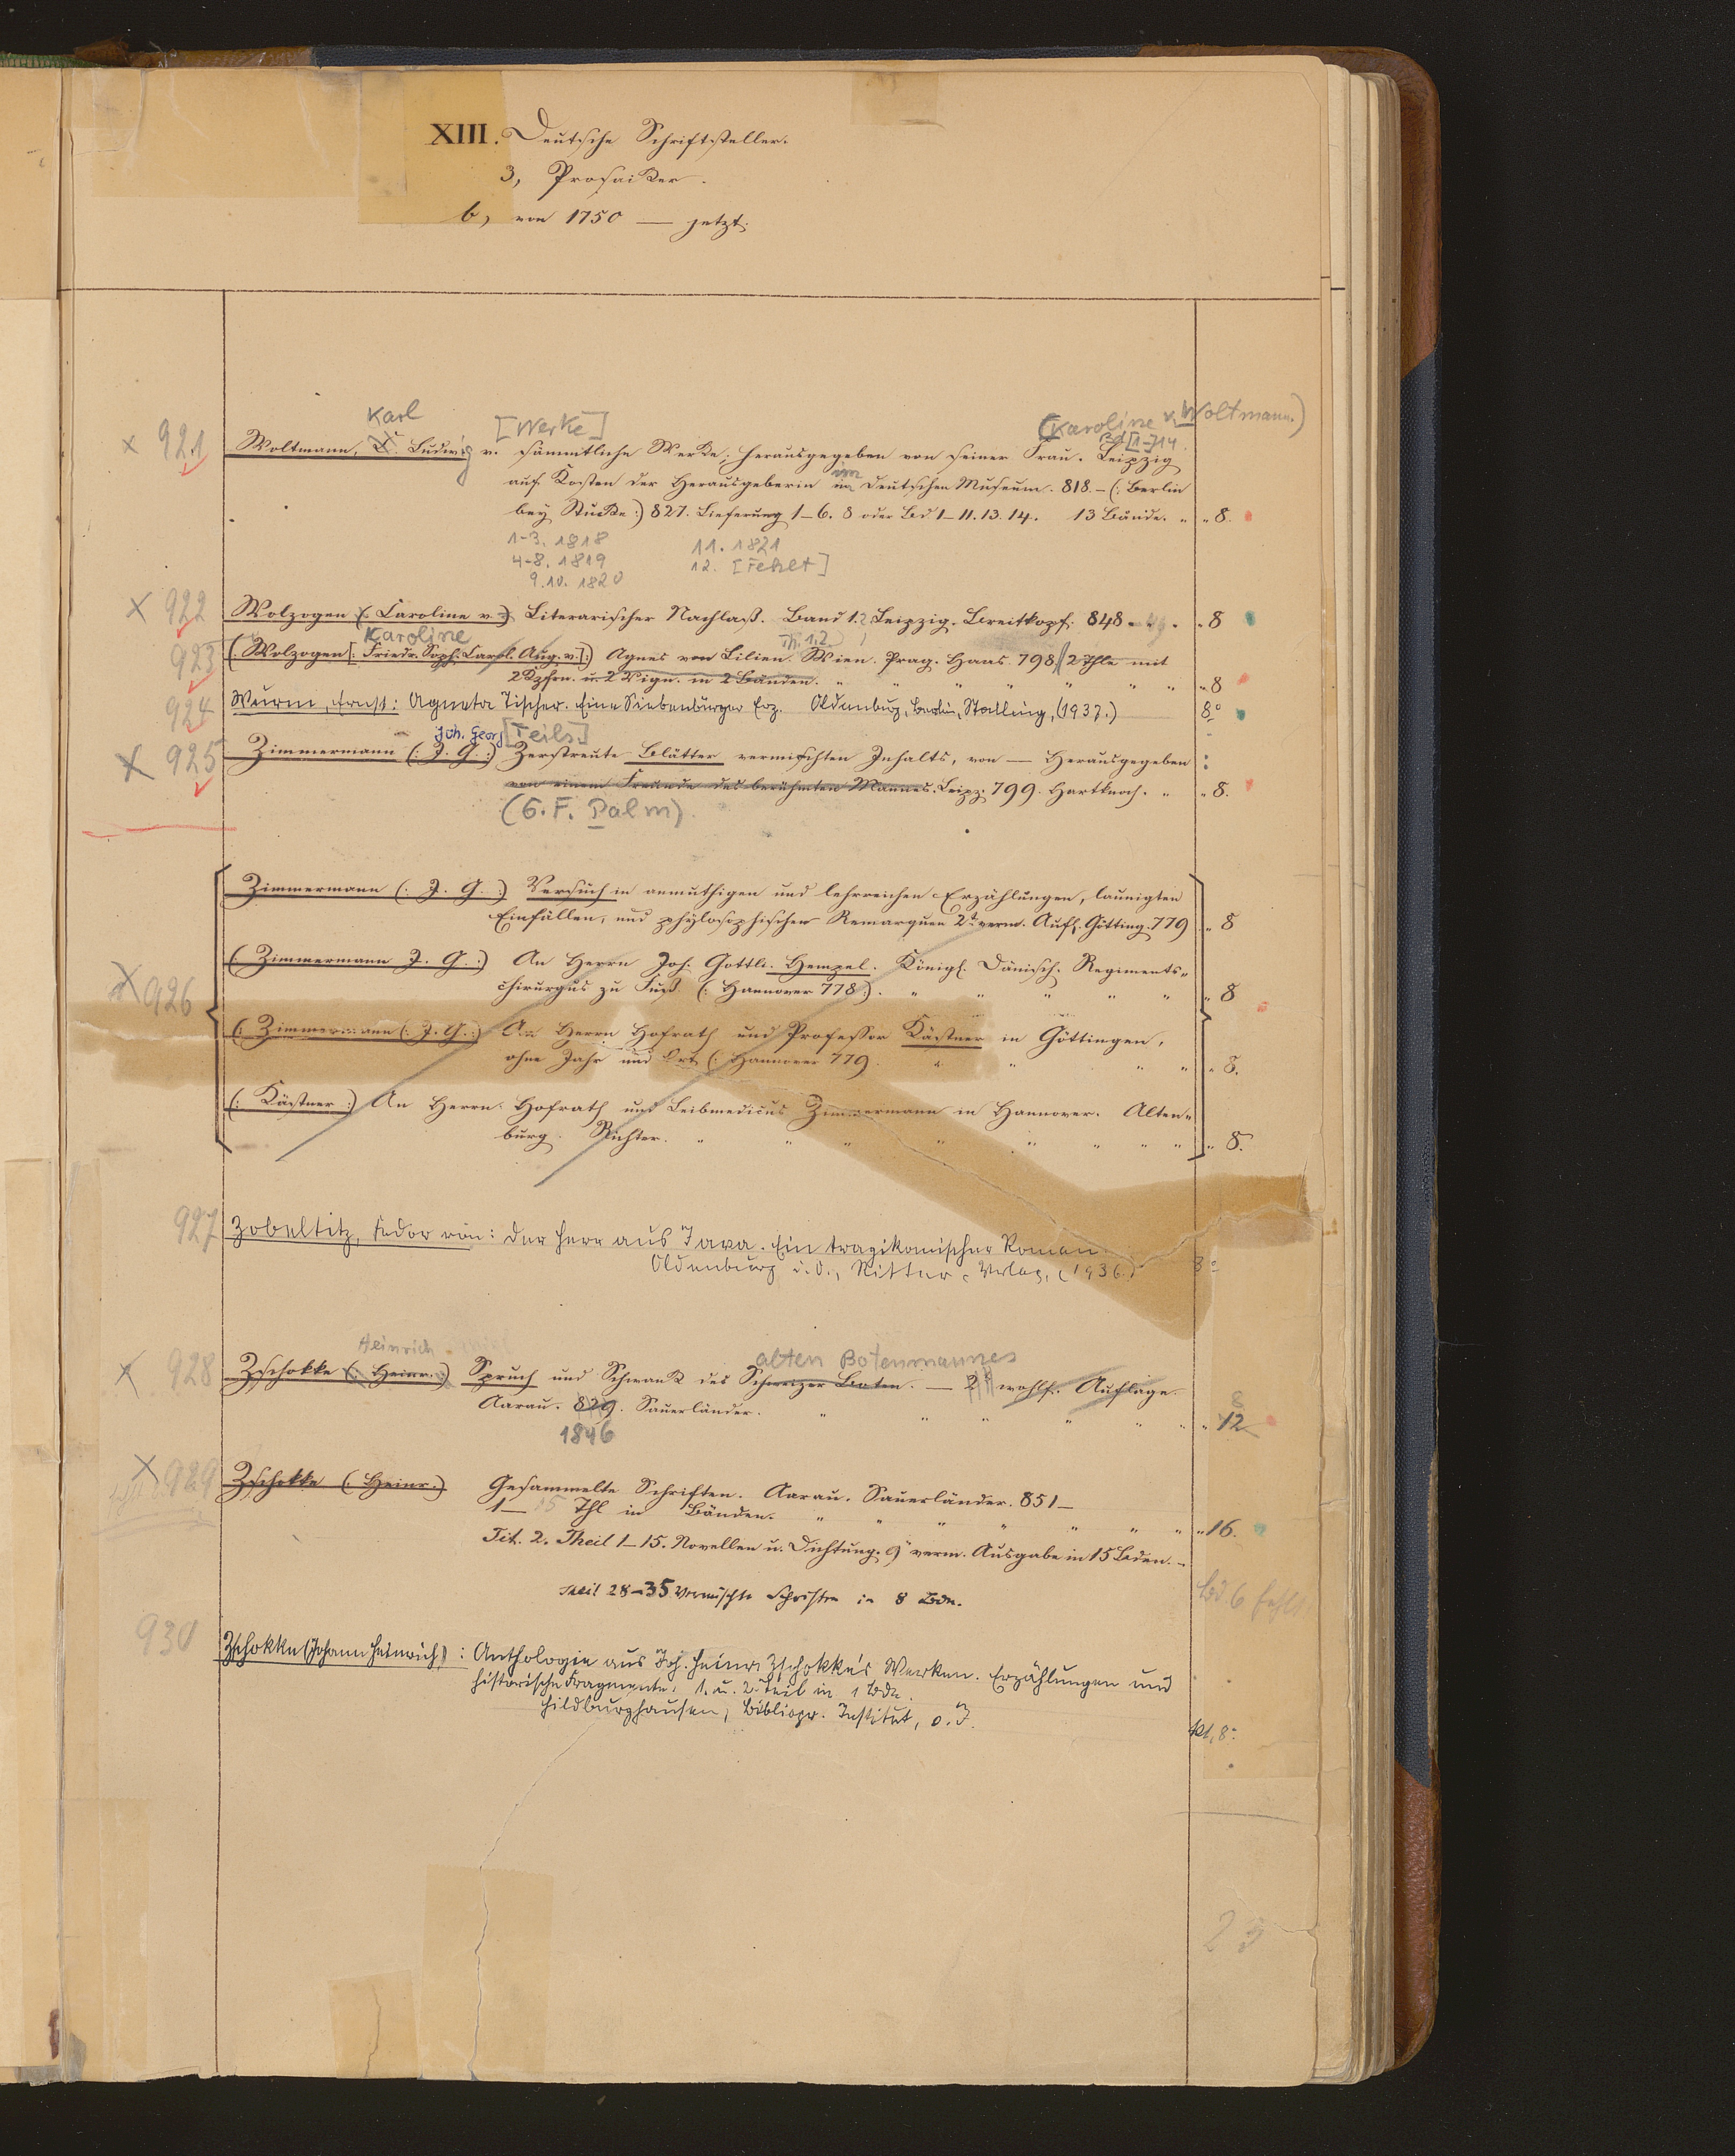 XIII. Deutsche Schriftsteller.
3, Prosaiker.
b, von 1750 — jetzt.
Karl [Werke] (Karoline v. Woltmann.)
Bd [1-]14.
921 Woltmann, C. Ludwig v. sämmtliche Werke; herausgegeben von seiner Frau. Leipzig
auf Kosten der Herausgeberin im Deutschen Museum. 818.-(: Berlin
bey Stucke :) 827. Lieferung 1-6. 8 oder Bd 1-11. 13. 14. 13 Bände. " " 8.
1-3. 1818 11. 1821
4-8. 1819 12. [Fehlt]
9.10. 1820
922 Wolzogen (: Caroline v. :) Literarischer Nachlaß. Band 1.2 Leipzig. Breitkopf. 848-49. " 8
Karoline Th. 1.2
923 (: Wolzogen [: Friedr. Soph. Carol. Aug. v. ]:) Agnes von Lilien. Wien. Prag. Haas. 798. 2 Thle mit
2 Kpfrn. u. 2 Vign. in 2 Bänden. " " " " " " " " 8
924 Wurm, Ernst: Agneta Tischer. Eine Siebenbürger Erz. Oldenburg, Berlin, Stalling, (1937.) 8°
Joh. Georg [Teils.]
925 Zimmermann (: J. G. :) Zerstreute Blätter vermischten Inhalts, von — Herausgegeben
von einem Freunde des berühmten Mannes. Leipz. 799. Hartknoch. " " 8.
(G. F. Palm).
Zimmermann (: J. G. :) Versuch in anmuthigen und lehrreichen Erzählungen, launigten
Einfällen, und phylosophischen Remarquen 2t verm. Aufl. Götting. 779 " 8
926 (: Zimmermann J. G. :) An Herrn Joh. Gottli. Hempel. Königl. Dänisch. Regiments-
chirurgus zu Fuß. (: Hannover 778 :). " " " " " " 8
(: Zimmermann (: J. G. :) An Herrn Hofrath und Professor Kästner in Göttingen,
ohne Jahr und Ort (: Hannover 779. " " " " " 8.
(: Kästner :) An Herrn Hofrath und Leibmedicus Zimmermann in Hannover. Alten-
burg. Richter. " " " " " " " " " 8.
927 Zobeltitz, Fedor von: Der Herr aus Java. Ein tragikomischer Roman.
Oldenburg i. O., Ritter-Verlag, (1936.) 8°
Heinrich alten Botenmannes
928 Zschokke (: Heinr. :) Spruch und Schwank des Schweizer Boten. — 2t wohlf. Auflage.
8
Aarau. 829. Sauerländer. " " " " " " " 12
1846
929 Zschokke (: Heinr.) Gesammelte Schriften. Aarau. Sauerländer. 851—
1—15 Thl in Bänden. " " " " " " " " 16.
Tit. 2. Theil 1-15. Novellen u. Dichtung. 9t verm. Ausgabe in 15 Bden.
Theil 28-35 Vermischte Schriften in 8 Bdn.
Bd. 6 fehlt
930 Zschokke (Johann Heinrich): Anthologie aus Joh. Heinr. Zschokke's Werken. Erzählungen und
historische Fragmente. 1. u. 2. Teil in 1 Bde.
Hildburghausen, Bibliogr. Institut, o. J. kl. 8°